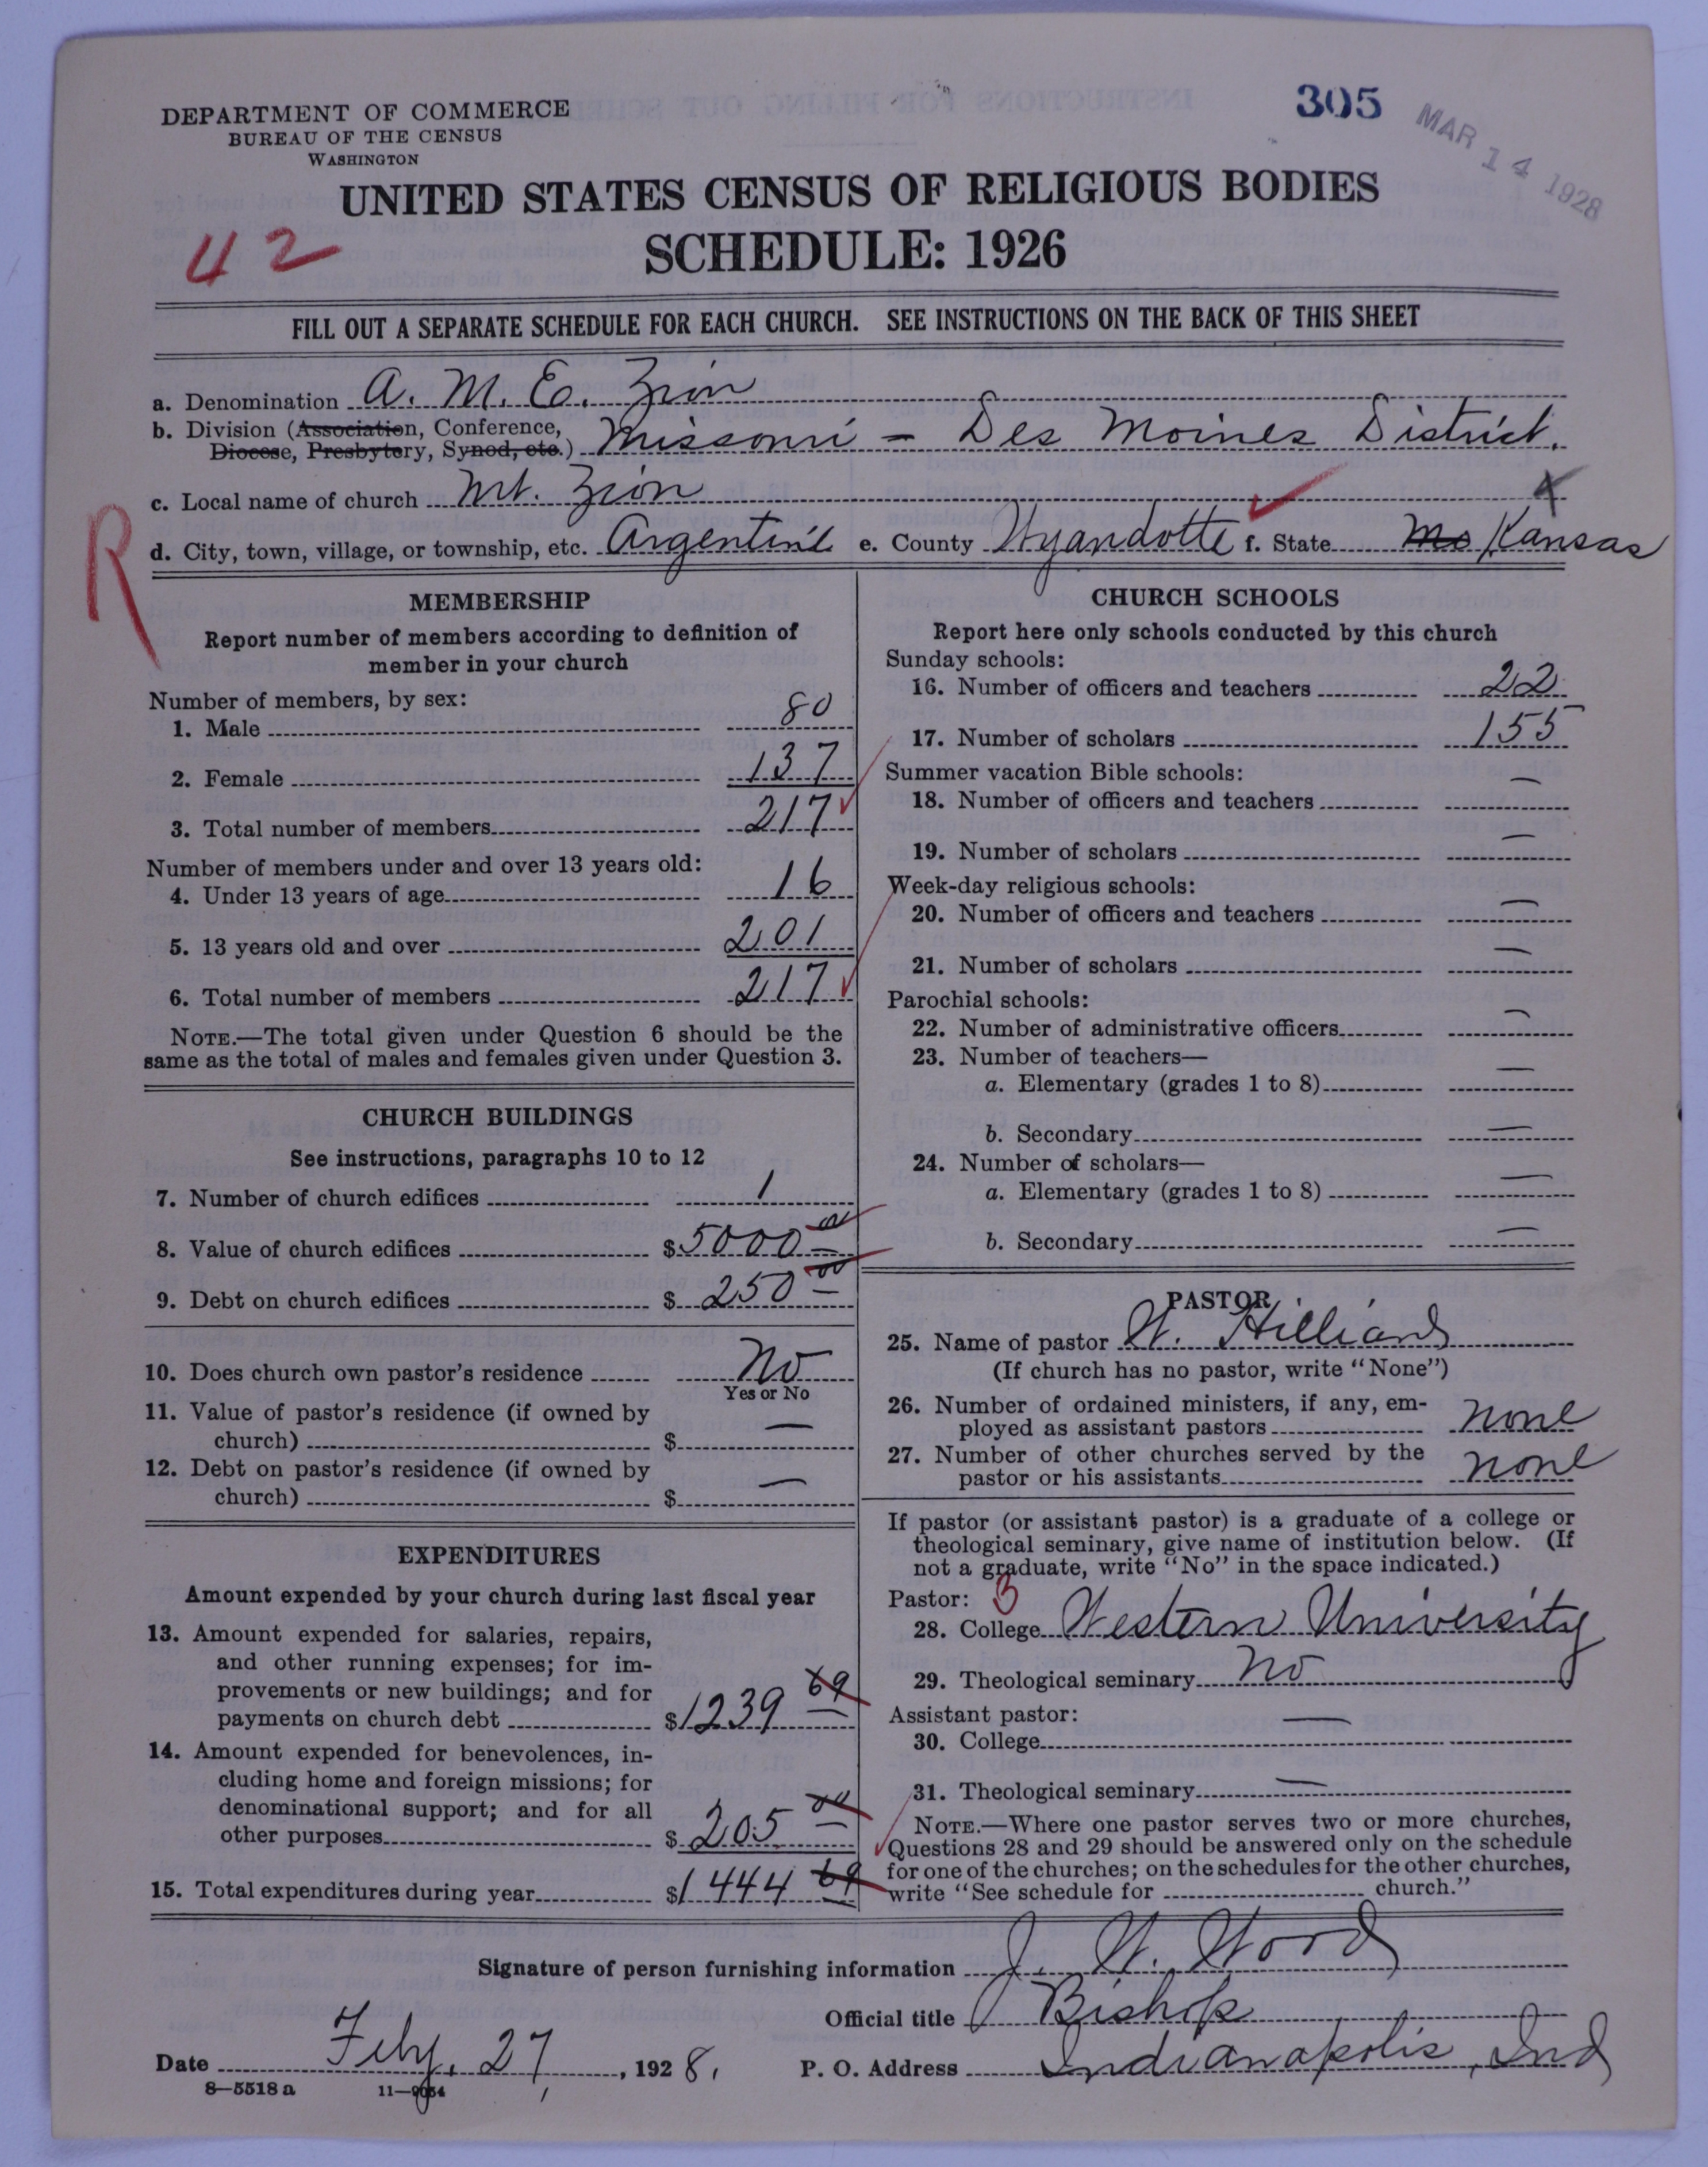 305
MAR 14 1928
DEPARTMENT OF COMMERCE
BUREAU OF THE CENSUS
WASHINGTON
UNITED STATES CENSUS OF RELIGIOUS BODIES
SCHEDULE: 1926
42
FILL OUT A SEPARATE SCHEDULE FOR EACH CHURCH. SEE INSTRUCTIONS ON THE BACK OF THIS SHEET
a. Denomination A. M. E. Zion
b. Division (Association, Conference,
Diocese, Presbytery, Synod, etc.) Missouri – Des Moines District.
c. Local name of church Mt. Zion
R
d. City, town, village, or township, etc. Argentine e. County Wyandotte f. State Mo Kansas
MEMBERSHIP
Report number of members according to definition of
member in your church
Number of members, by sex:
1. Male 80
2. Female 137
3. Total number of members 217
Number of members under and over 13 years old:
4. Under 13 years of age 16
5. 13 years old and over 201
6. Total number of members 217
NOTE.—The total given under Question 6 should be the
same as the total of males and females given under Question 3.
CHURCH BUILDINGS
See instructions, paragraphs 10 to 12
7. Number of church edifices 1
8. Value of church edifices $5000 00
9. Debt on church edifices $ 250 00
10. Does church own pastor's residence No
Yes or No
11. Value of pastor's residence (if owned by
church) $ —
12. Debt on pastor's residence (if owned by
church) $ —
EXPENDITURES
Amount expended by your church during last fiscal year
13. Amount expended for salaries, repairs,
and other running expenses; for im-
provements or new buildings; and for
payments on church debt $1239 69
14. Amount expended for benevolences, in-
cluding home and foreign missions; for
denominational support; and for all
other purposes $ 205 00
15. Total expenditures during year $1444 69
CHURCH SCHOOLS
Report here only schools conducted by this church
Sunday schools:
16. Number of officers and teachers 22
17. Number of scholars 155
Summer vacation Bible schools:
18. Number of officers and teachers —
19. Number of scholars —
Week-day religious schools:
20. Number of officers and teachers —
21. Number of scholars —
Parochial schools:
22. Number of administrative officers —
23. Number of teachers—
a. Elementary (grades 1 to 8) —
b. Secondary —
24. Number of scholars—
a. Elementary (grades 1 to 8) —
b. Secondary —
PASTOR
25. Name of pastor W. Hilliard
(If church has no pastor, write "None")
26. Number of ordained ministers, if any, em-
ployed as assistant pastors none
27. Number of other churches served by the
pastor or his assistants none
If pastor (or assistant pastor) is a graduate of a college or
theological seminary, give name of institution below. (If
not a graduate, write "No" in the space indicated.)
Pastor: 3
28. College Western University
29. Theological seminary No
Assistant pastor: —
30. College
31. Theological seminary —
NOTE.—Where one pastor serves two or more churches,
Questions 28 and 29 should be answered only on the schedule
for one of the churches; on the schedules for the other churches,
write "See schedule for church."
Signature of person furnishing information J. W. Wood
Official title Bishop
Date Feby. 27, 1928. P. O. Address Indianapolis, Ind
8—5518 a 11—9054